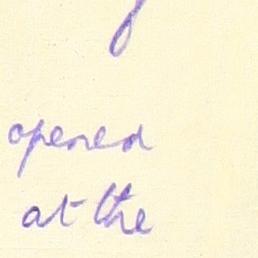 opened
at the